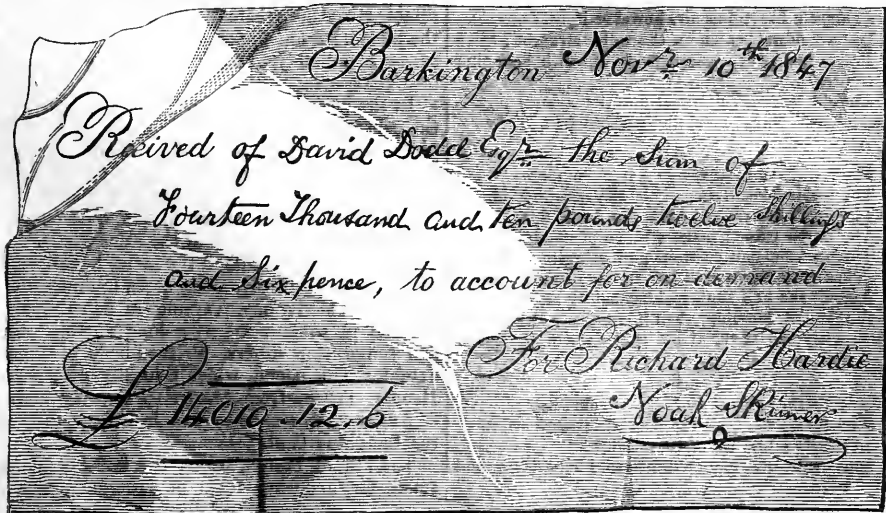 Barkington Novr 10th 1847
Received of David Dodd Esqr the Sum of
Fourteen Thousand and ten pounds twelve Shillings
and Six pence, to account for on demand
For Richard Hardie
£ 14010.12.6
Noah Skinner